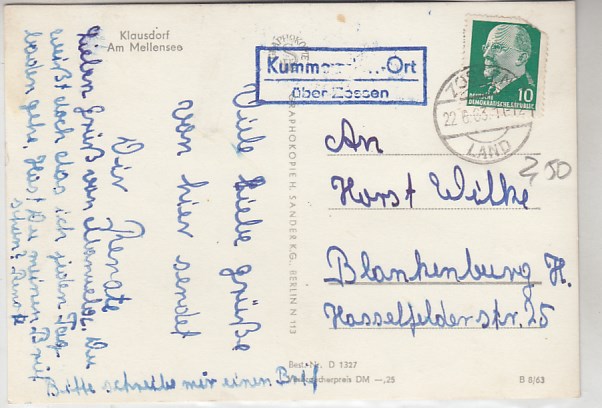 Klausdorf
Am Mellensee
Viele liebe Grüße
von hier sendet
Dir Renate
Lieben Gruß von Manuela. Du
weißt doch das ich jeden Tag
baden gehe. Hast Du meinen Brief
schon? Renate
Bitte schreibe mir einen Brief
GRAPHOKOPIE H. SANDER KG., BERLIN N 113
Best.-Nr. D 1327
DM —,25
B 8/63
-Ort
über Zossen
10
DEUTSCHE
DEMOKRATISCHE REPUBLIK
22.6.63
LAND
2,50
An
Horst Wilke
Blankenburg H.
Hasselfelderstr. 25